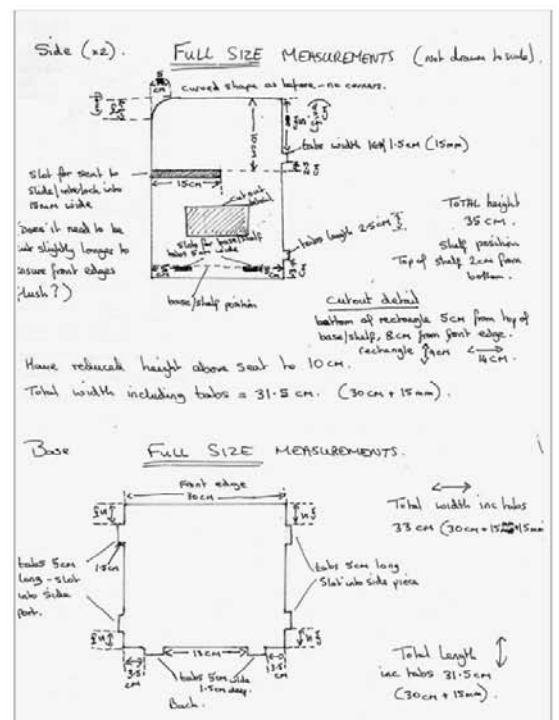 Side (x2). FULL SIZE MEASUREMENTS (not drawn to scale).
5 cm
curved shape as before - no corners.
tabs width 1.5cm (15mm)
slot for seat to
slide/interlock into
15mm wide
15CM
cutout detail
TOTAL height
35 CM.
(Does it need to be
cut slightly longer to
ensure front edges
flush?)
slots for base/shelf
tabs 5cm wide
tabs length 2.5cm
shelf position
Top of shelf 2cm from
bottom.
base/shelf position
cutout detail
bottom of rectangle 5cm from top of
base/shelf, 8cm from front edge.
rectangle 9cm 14cm
Have reduced height above seat to 10cm.
Total width including tabs = 31.5 cm. (30cm + 15mm).
Base FULL SIZE MEASUREMENTS.
Front edge
30CM
Total width inc tabs
33 cm (30cm + 15mm + 15mm
1.5cm
tabs 5cm
long - slot
into side
part.
tabs 5cm long
Slot into side piece
13CM
3.5 CM
3.5 CM
tabs 5cm wide
1.5cm deep.
Back.
Total Length
inc tabs 31.5cm
(30cm + 15mm)